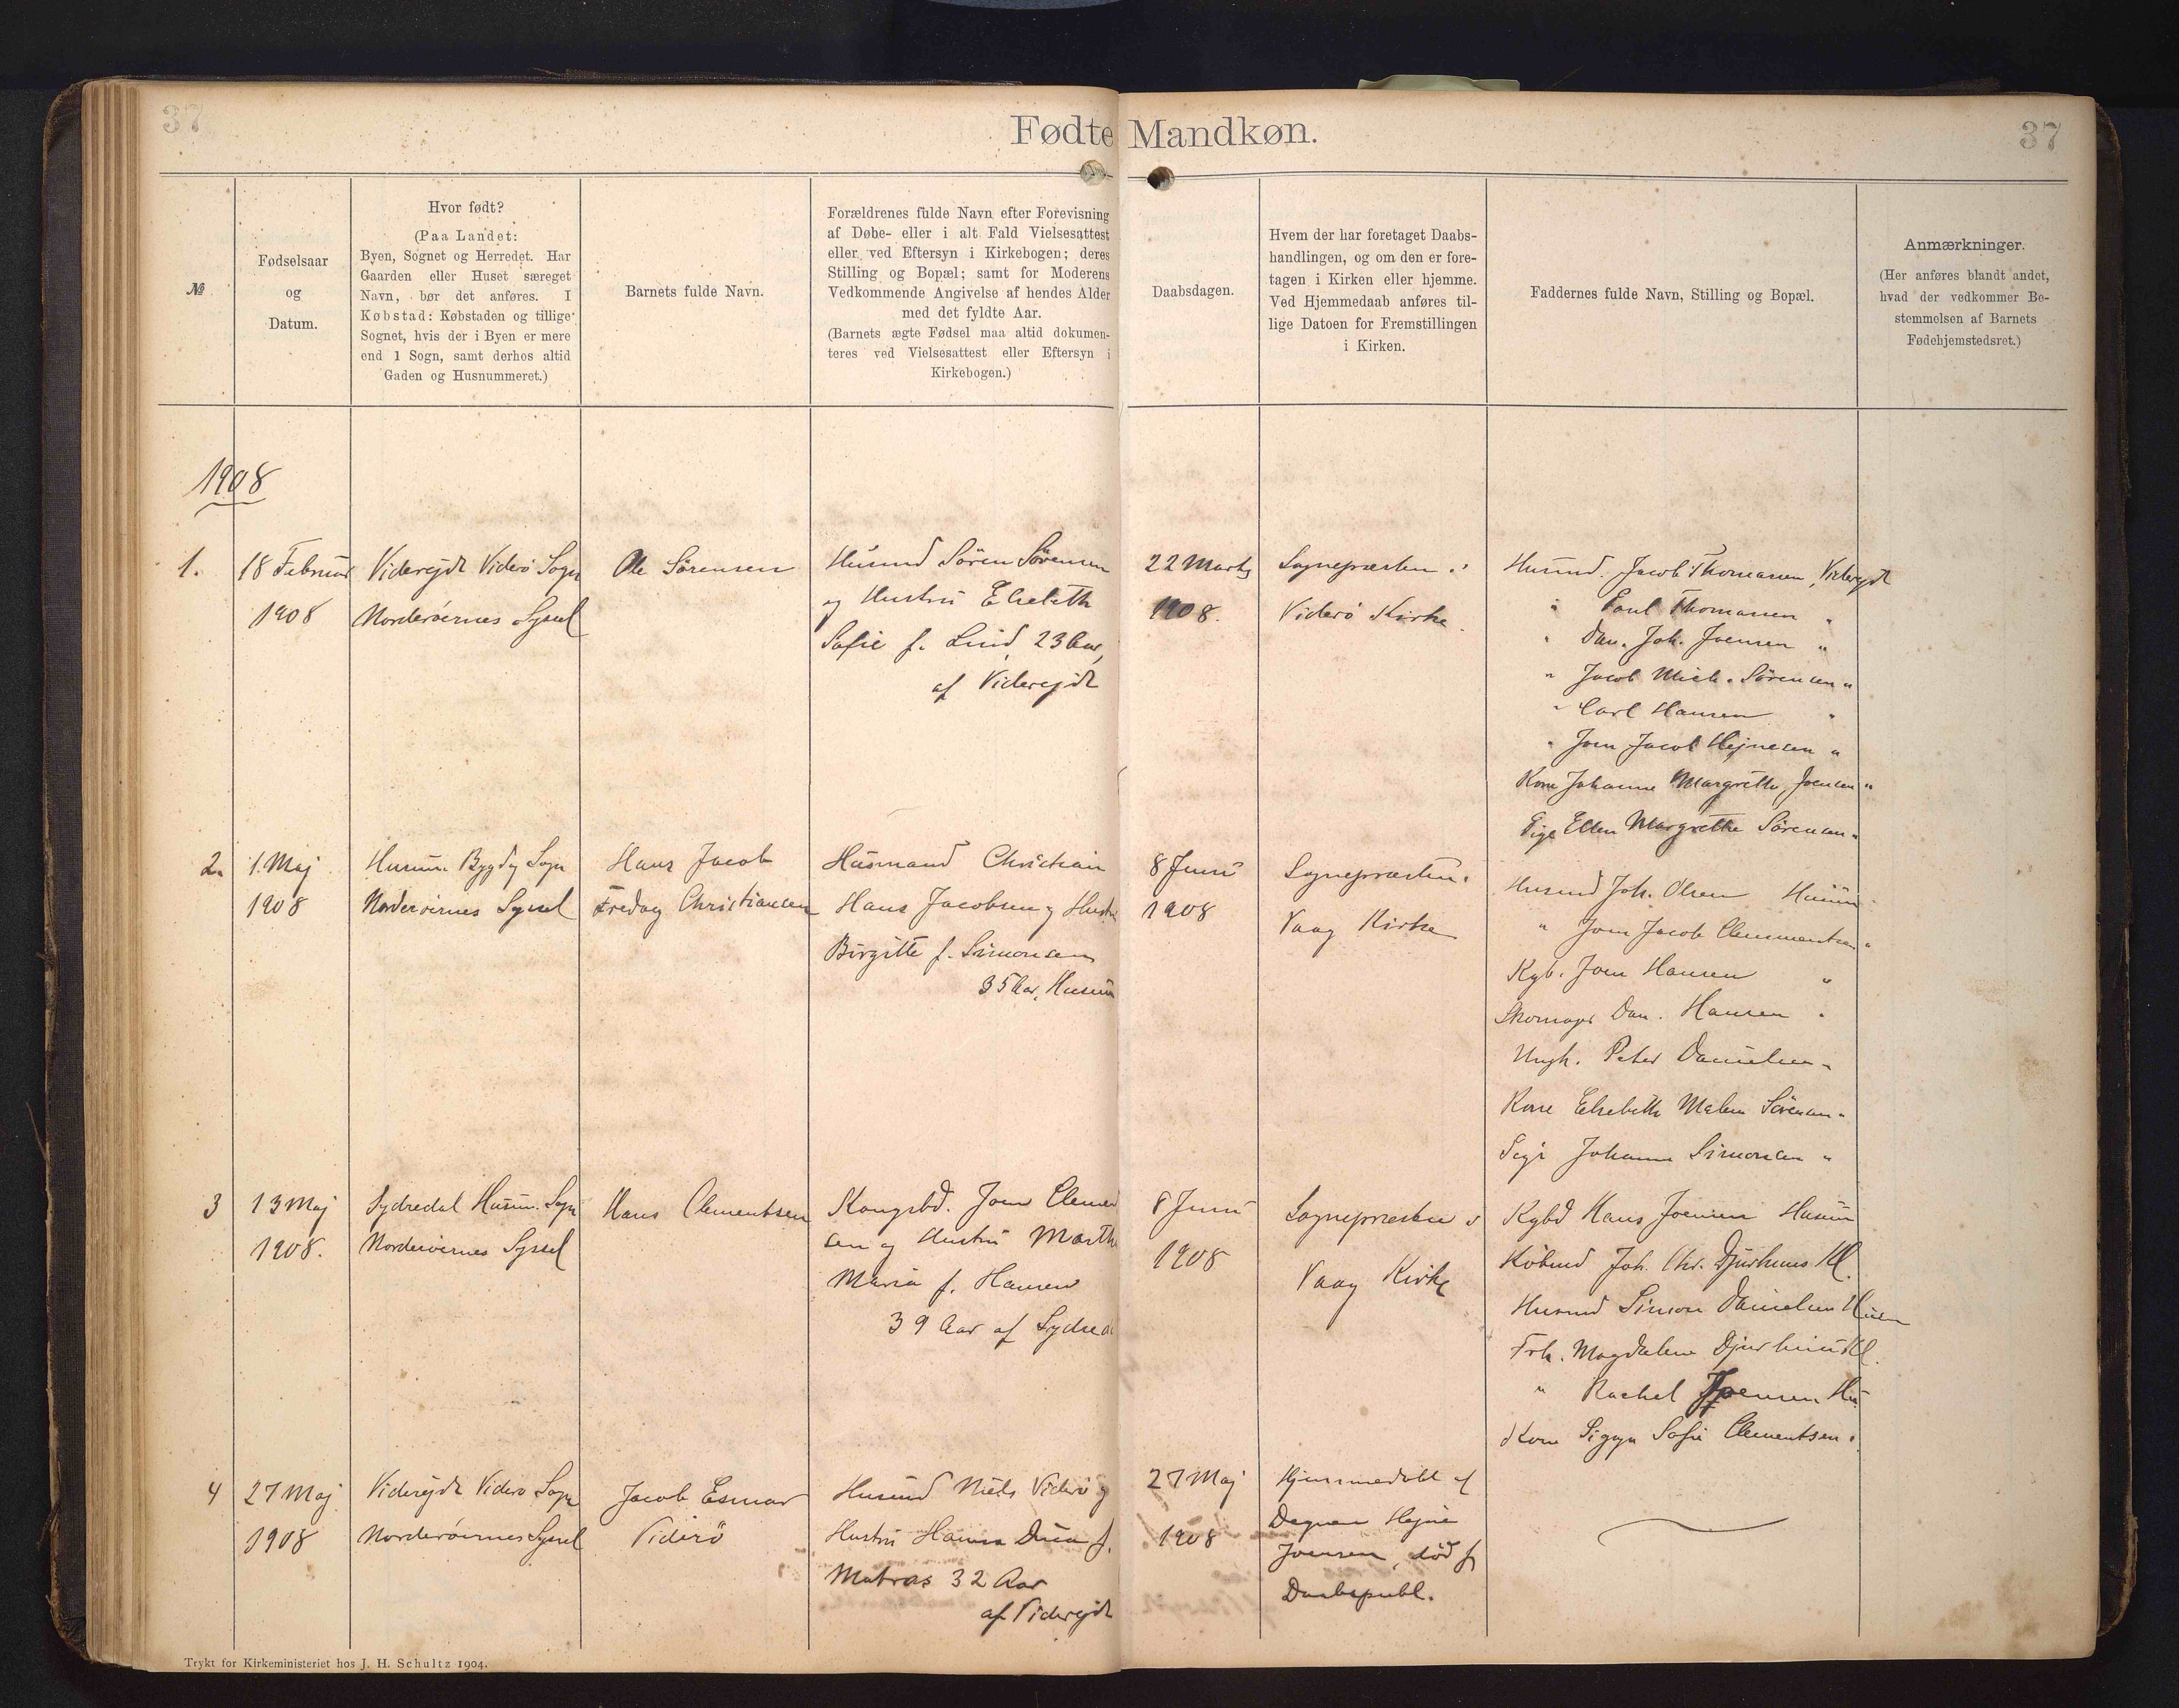 37
Fødte Mandkøn.
37
№
Fødselsaar
og
Datum.
Hvor født?
(Paa Landet:
Byen, Sognet og Herredet. Har
Gaarden eller Huset særeget
Navn, bør det anføres. I
Købstad: Købstaden og tillige
Sognet, hvis der i Byen er mere
end 1 Sogn, samt derhos altid
Gaden og Husnummeret.)
Barnets fulde Navn.
Forældrenes fulde Navn efter Forevisning
af Døbe- eller i alt Fald Vielsesattest
eller ved Eftersyn i Kirkebogen; deres
Stilling og Bopæl; samt for Moderens
Vedkommende Angivelse af hendes Alder
med det fyldte Aar.
(Barnets ægte Fødsel maa altid dokumen-
teres ved Vielsesattest eller Eftersyn i
Kirkebogen.)
Daabsdagen.
Hvem der har foretaget Daabs-
handlingen, og om den er fore-
tagen i Kirken eller hjemme.
Ved Hjemmedaab anføres til-
lige Datoen for Fremstillingen
i Kirken.
Faddernes fulde Navn, Stilling og Bopæl.
Anmærkninger.
(Her anføres blandt andet,
hvad der vedkommer Be-
stemmelsen af Barnets
Fødehjemstedsret.)
1908
1.
18 Februar
1908
Viderejde Viderö Sogn
Norderöernes Syssel
Ole Sörensen
Husmd Sören Sörensen
og Hustru Elsebeth
Sofie f. Lind, 23 Aar,
af Viderejde
22 Marts
1908.
Sognepræsten i
Viderö Kirke.
Husmd. Jacob Thomassen, Viderejde
" Poul Thomassen "
" Dan. Joh. Joensen "
" Jacob Mich. Sörensen "
" Carl Hansen "
" Joen Jacob Hejnesen "
Kone Johanne Margrethe Joensen "
Pige Ellen Margrethe Sörensen "
2.
1. Maj
1908
Husum Bygd Sogn
Norderöernes Syssel
Hans Jacob
Fredag Christiansen
Husmand Christian
Hans Jacobsen og Hustru
Birgitte f. Simonsen
35 Aar, Husum
8 Juni
1908
Sognepræsten i
Vaag Kirke
Husmd Joh. Olsen Husum
" Joen Jacob Clementsen "
Kgb. Joen Hansen "
Skomager Dan. Hansen "
Ungk. Peter Danielsen "
Kone Elsebeth Malene Sörensen "
Pige Johanne Simonsen "
3
13 Maj
1908.
Sydredal Husum Sogn
Norderöernes Syssel
Hans Clementsen
Kongsbd. Joen Clement
sen og Hustru Marthe
Maria f. Hansen
39 Aar af Sydredal
8 Juni
1908
Sognepræsten i
Vaag Kirke
Kgbd Hans Joensen Husum
Köbmd Joh. Chr. Djurhuus Kl.
Husmd Simon Danielsen Husum
Frk. Magdalene Djurhuus Kl.
" Rachel Joensen Hus
Kone Sigga Sofie Clementsen "
4
27 Maj
1908
Viderejde Viderö Sogn
Norderöernes Syssel
Jacob Esmar
Viderö
Husmd Niels Viderö og
Hustru Hanna Duca f.
Matras 32 Aar
af Viderejde
27 Maj
1908
Hjemmedøbt af
Degnen Hejne
Joensen, død f.
Daabspubl.
Trykt for Kirkeministeriet hos J. H. Schultz 1904.